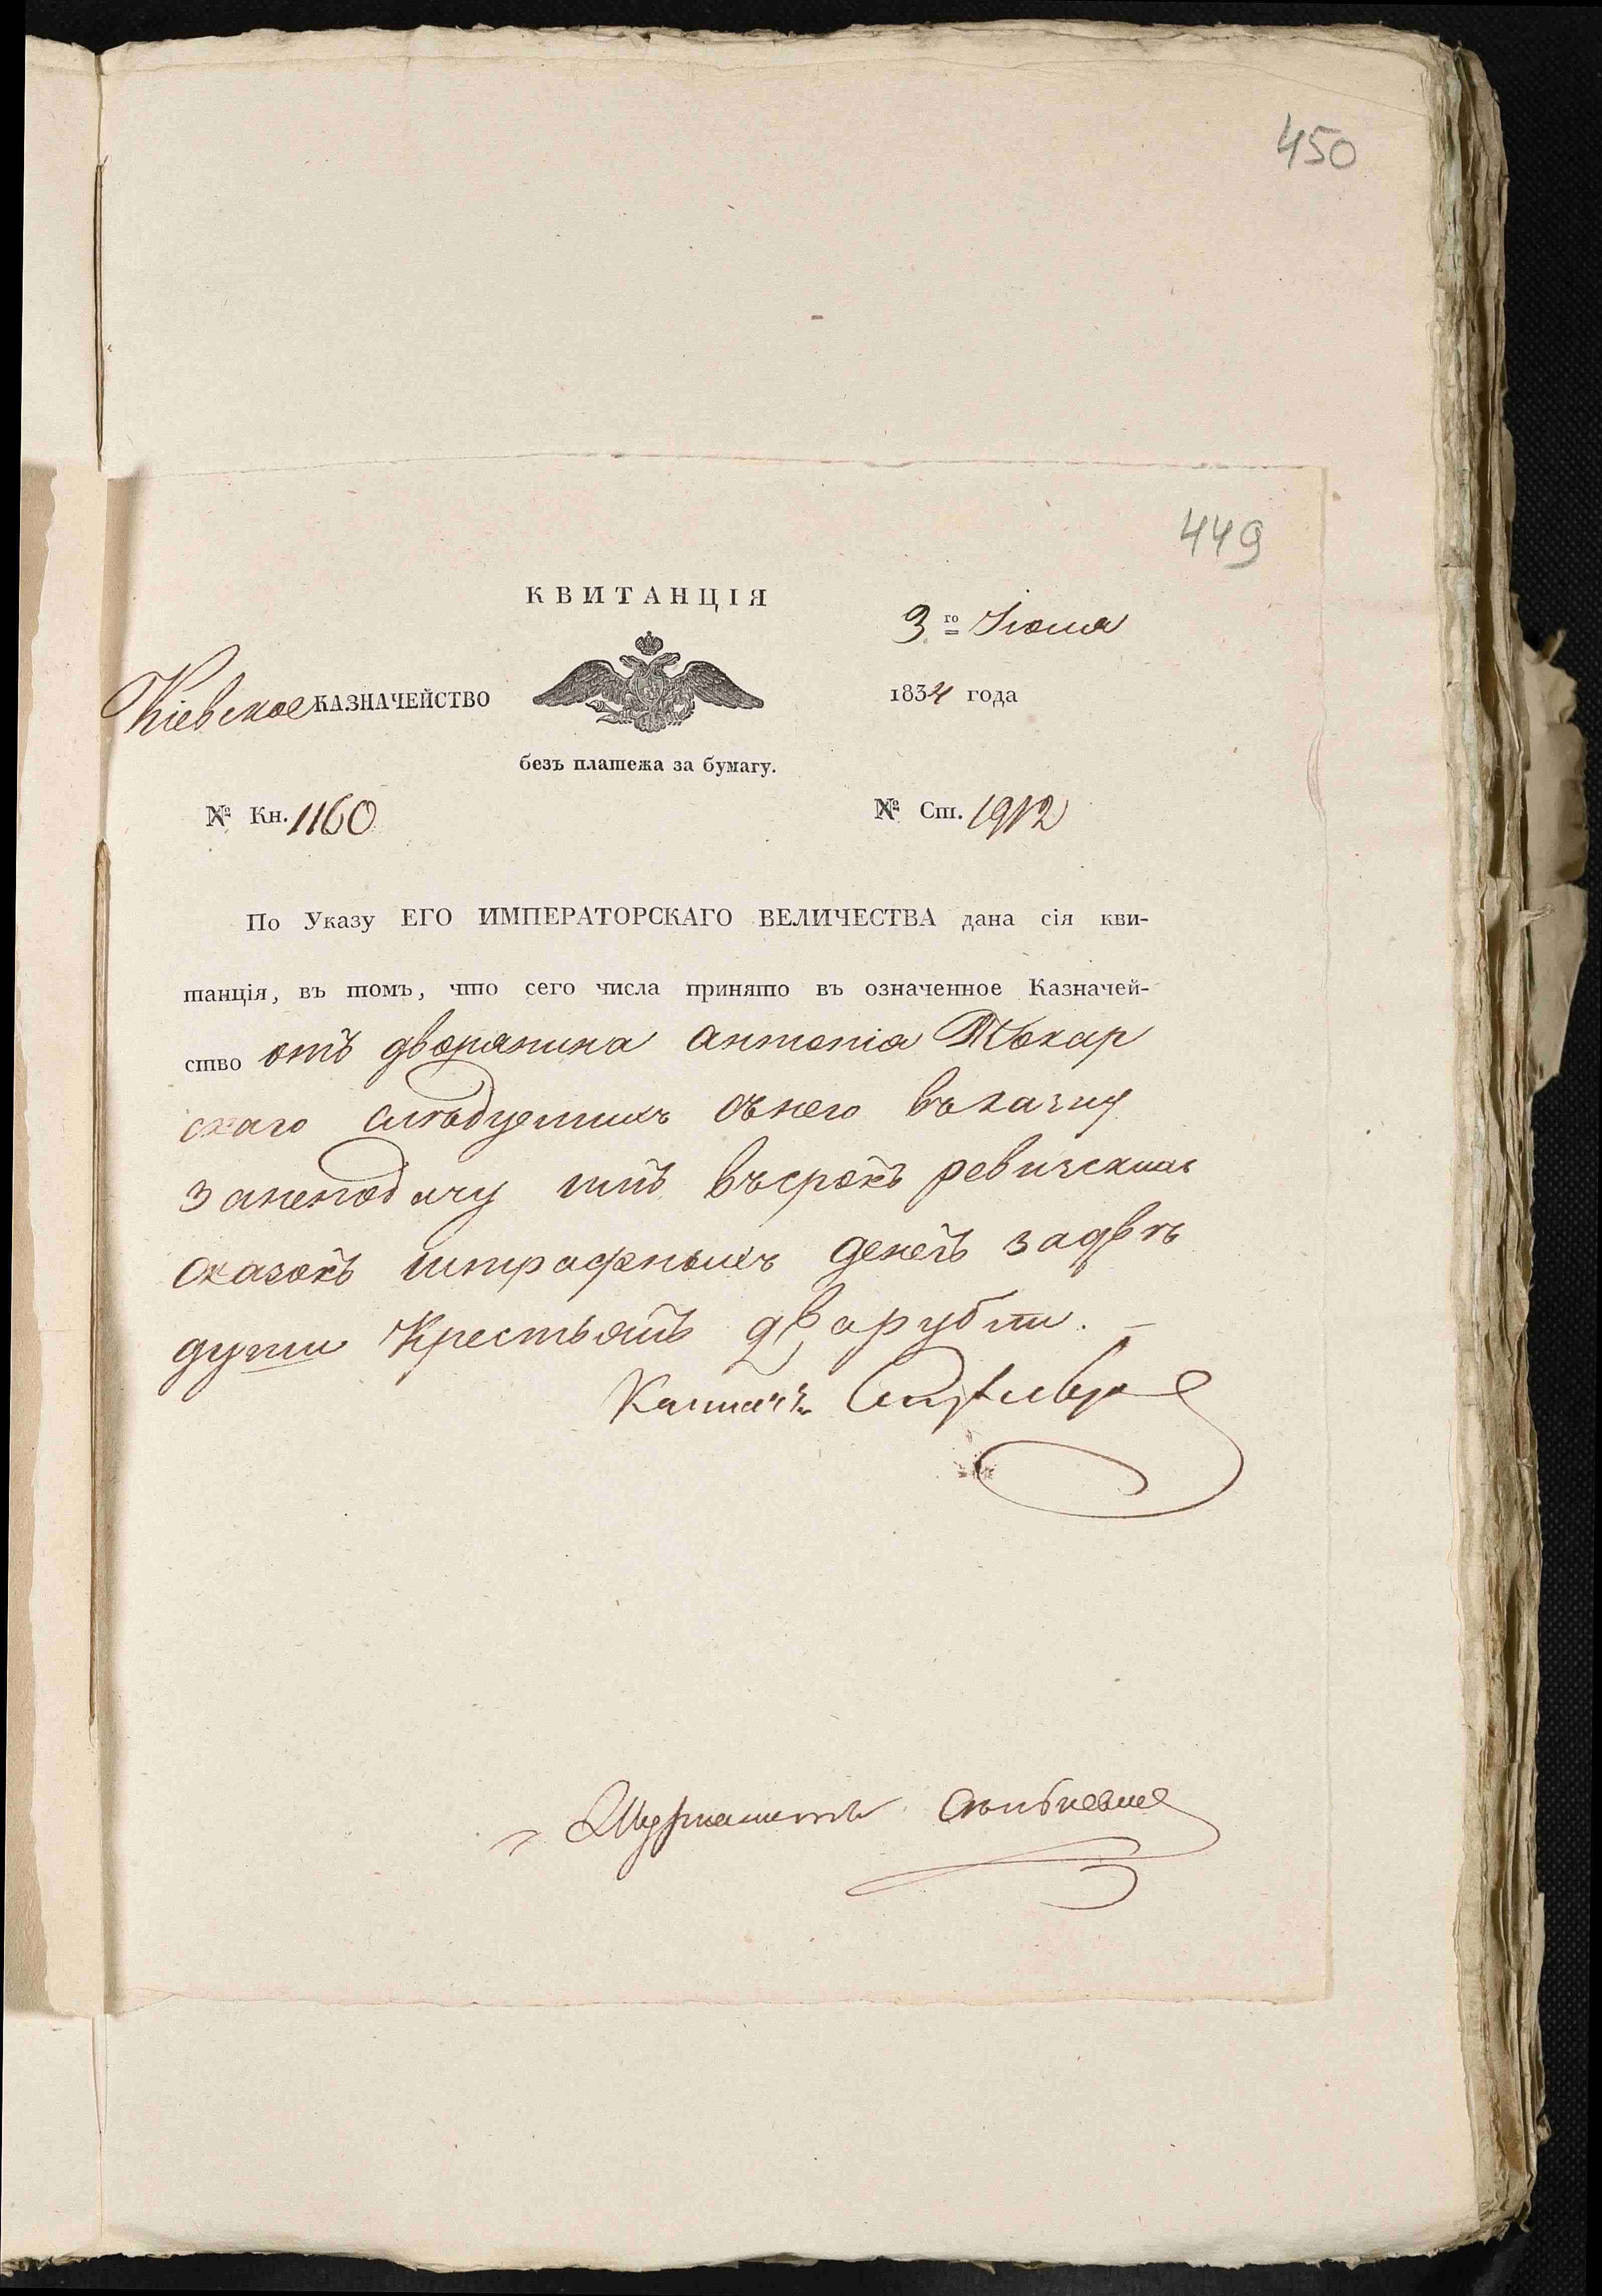 450
449
КВИТАНЦІЯ
3 го Іюня
Кіевское КАЗНАЧЕЙСТВО
1834 года
безъ платежа за бумагу.
№ Кн. 1160
№ Ст. 1912
По Указу ЕГО ИМПЕРАТОРСКАГО ВЕЛИЧЕСТВА дана сія кви-
танція, въ томъ, что сего числа принято въ означенное Казначей-
ство отъ дворянина Антонія Пѣкар
скаго слѣдуемихъ снего въказну
занеподачу имъ въсрокъ ревизскихъ
сказокъ штрафныхъ денегъ задвѣ
души Крестьянъ дварубли. –
Казнач: